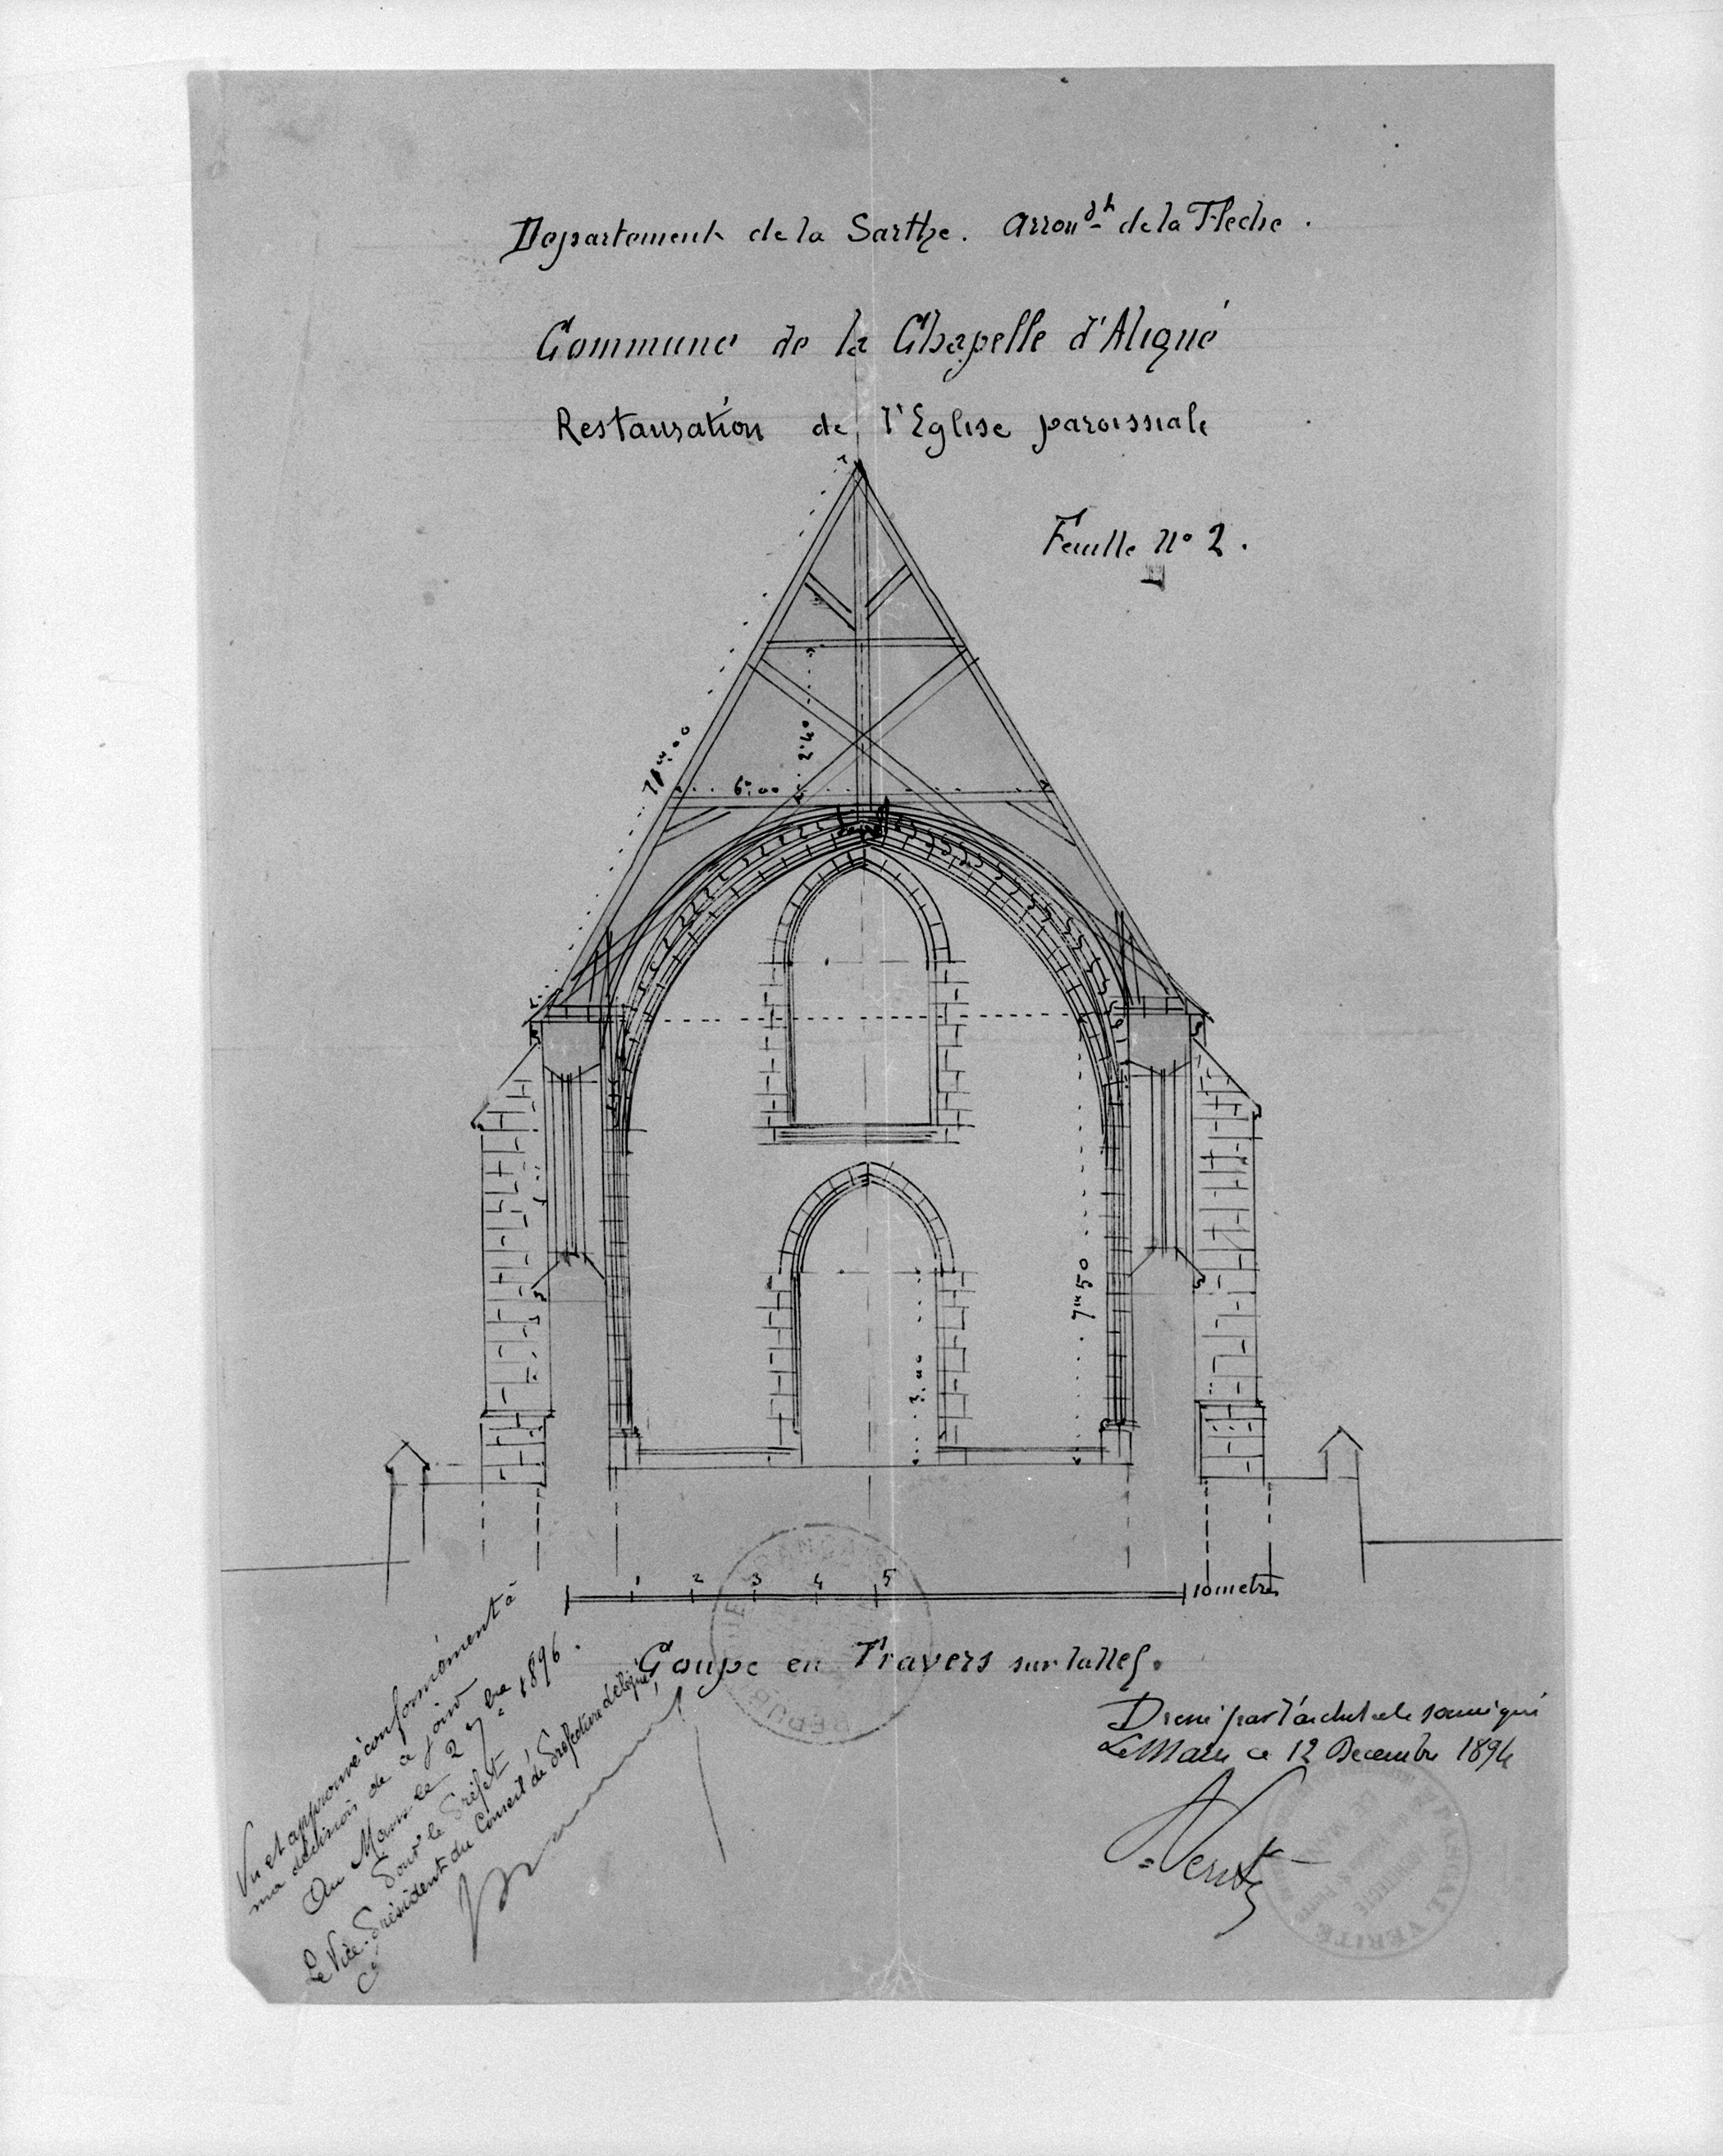 Departement de la Sarthe. Arron^dt de la Fleche.
Commune de la Chapelle d'Aligné
Restauration de l'Eglise paroissiale
Feuille N° 2.
2,40
6,00
7m50
3,00
1 2 3 4 5 10 metres
Coupe en Travers sur la Nef.
Dressé par l'architecte soussigné
Le Mans ce 12 Decembre 1894
A Verité
Vu et approuvé conformément à
ma décision de ce jour
Au Mans le 2 7bre 1896.
Pour le Préfet
Le Vice-Président du Conseil de Préfecture délégué
PASCAL VERITE
ARCHITECTE